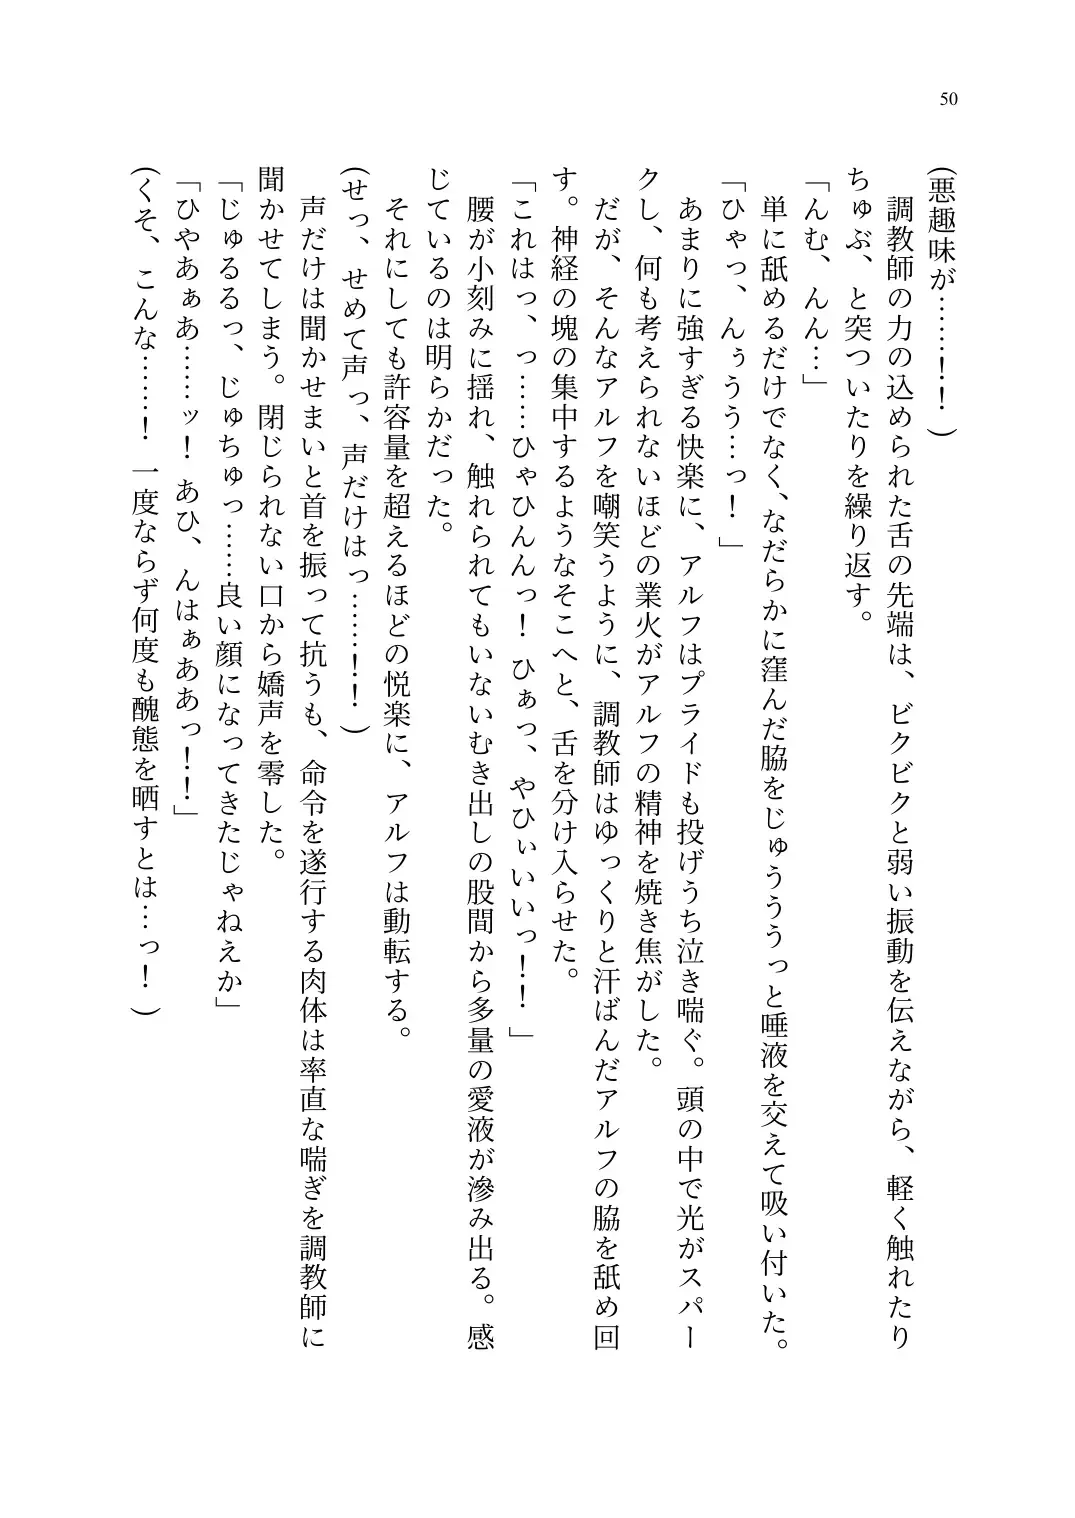 50
(悪趣味が………！！)
　調教師の力の込められた舌の先端は、ビクビクと弱い振動を伝えながら、軽く触れたり
ちゅぶ、と突ついたりを繰り返す。
「んむ、んん…」
　単に舐めるだけでなく、なだらかに窪んだ脇をじゅうううっと唾液を交えて吸い付いた。
「ひゃっ、んぅうう…っ！」
　あまりに強すぎる快楽に、アルフはプライドも投げうち泣き喘ぐ。頭の中で光がスパー
クし、何も考えられないほどの業火がアルフの精神を焼き焦がした。
　だが、そんなアルフを嘲笑うように、調教師はゆっくりと汗ばんだアルフの脇を舐め回
す。神経の塊の集中するようなそこへと、舌を分け入らせた。
「これはっ、っ……ひゃひんんっ！　ひぁっ、やひぃいいっ！！」
　腰が小刻みに揺れ、触れられてもいないむき出しの股間から多量の愛液が滲み出る。感
じているのは明らかだった。
　それにしても許容量を超えるほどの悦楽に、アルフは動転する。
(せっ、せめて声っ、声だけはっ……！！)
　声だけは聞かせまいと首を振って抗うも、命令を遂行する肉体は率直な喘ぎを調教師に
聞かせてしまう。閉じられない口から嬌声を零した。
「じゅるるっ、じゅちゅっ……良い顔になってきたじゃねえか」
「ひやあぁあ……ッ！　あひ、んはぁああっ！！」
(くそ、こんな………！　一度ならず何度も醜態を晒すとは…っ！)